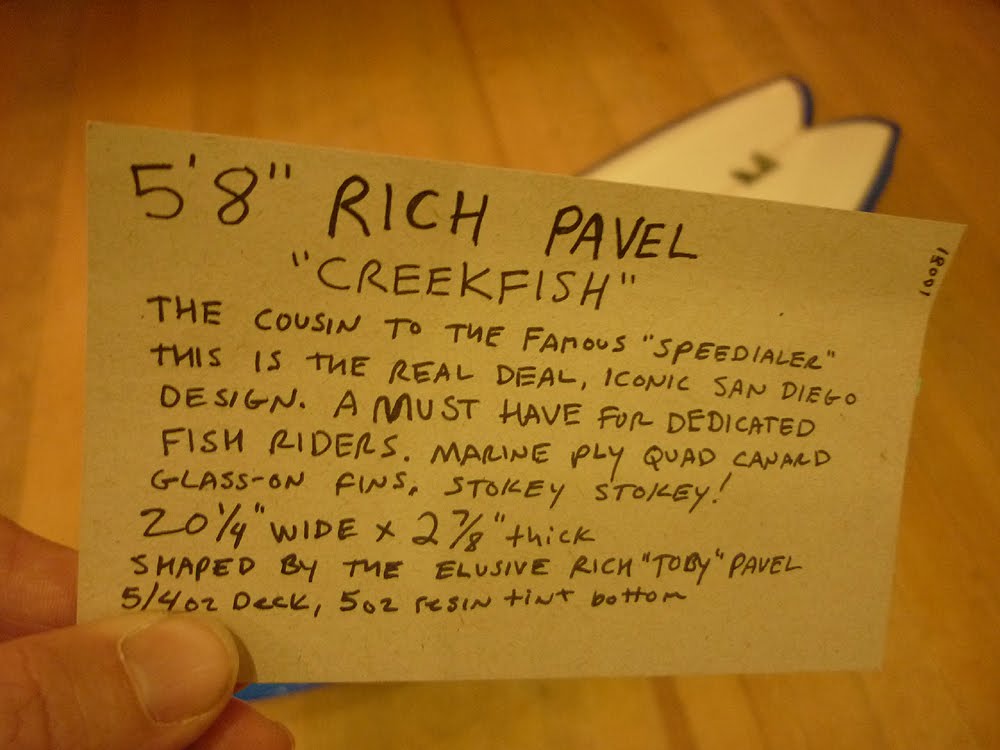 5'8" RICH PAVEL
"CREEKFISH"
THE COUSIN TO THE FAMOUS "SPEEDIALER"
THIS IS THE REAL DEAL, ICONIC SAN DIEGO
DESIGN. A MUST HAVE FOR DEDICATED
FISH RIDERS. MARINE PLY QUAD CANARD
GLASS-ON FINS. STOKEY STOKEY!
20 1/4" WIDE x 2 7/8" thick
SHAPED BY THE ELUSIVE RICH "TOBY" PAVEL
5/4oz Deck, 5oz resin tint bottom